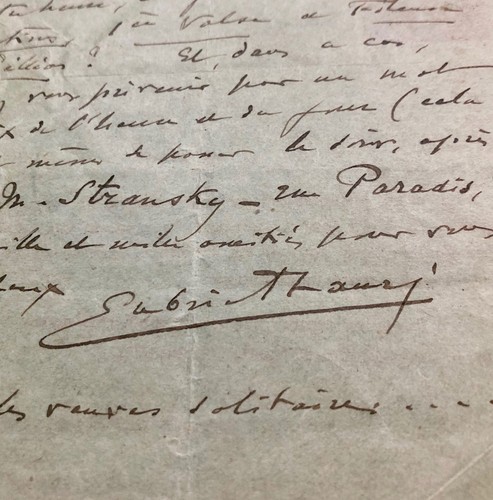 Valse
? Et, dans ce cas,
vous prévenir par un mot
de l'heure et du jour (cela
même de passer le soir, après
M. Stransky — rue Paradis,
ille et mille amitiés pour vous
Gabriel Fauré
les pauvres solitaires ....